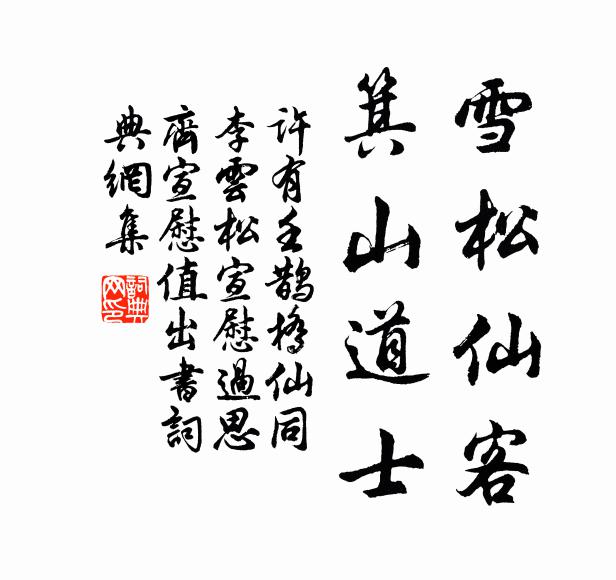 雪松仙客
箕山道士
许有壬鵲橋仙同
李雲松宣慰過思
齊宣慰值出書詞
典網集
詞典
网印